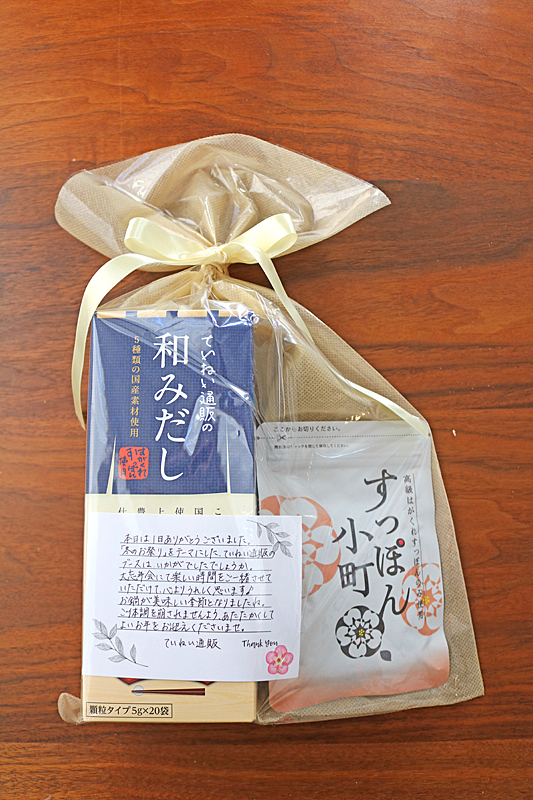 ていねい通販の
和みだし
5種類の国産素材使用
はがくれ
すっぽん
顆粒タイプ5g×20袋
ここからお切りください。
高級はがくれすっぽん
すっぽん
小町
本日は1日ありがとうございました。
「冬のお祭り」をテーマにした、ていねい通販の
ブースはいかがでしたでしょうか。
大忘年会にて楽しい時間をご一緒させて
いただけて、心よりうれしく思います♪
お鍋が美味しい季節となりましたね。
ご体調を崩されませんよう、あたたかくして
よいお年をお迎えくださいませ。
ていねい通販
Thank you